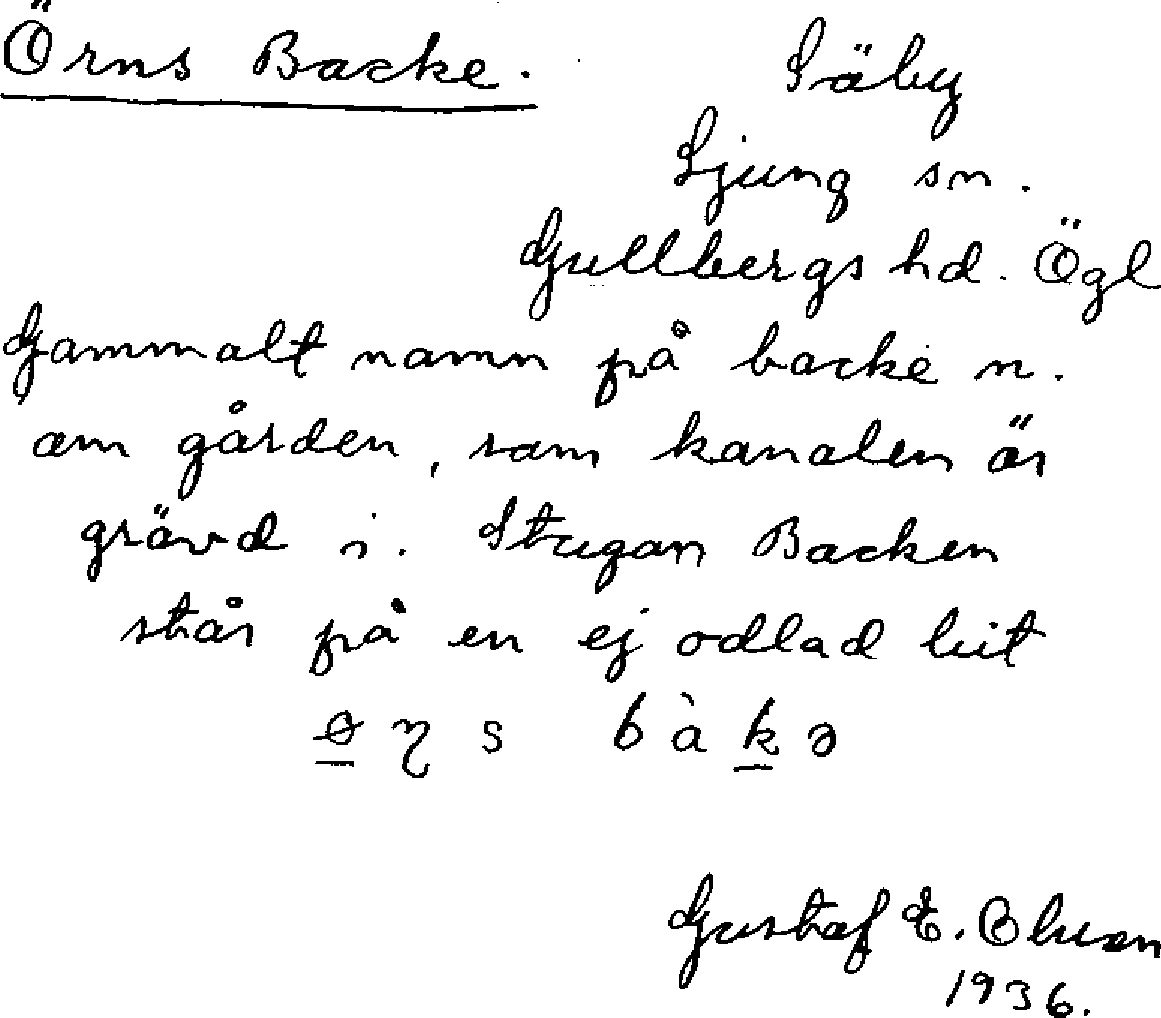 Örns Backe.
Säby
Ljung sn.
Gullbergs hd. Ögl
Gammalt namn på backe n.
om gården, som kanalen är
grävd i. Stugan Backen
står på en ej odlad bit
s bàkə
Gustaf E.
1936.